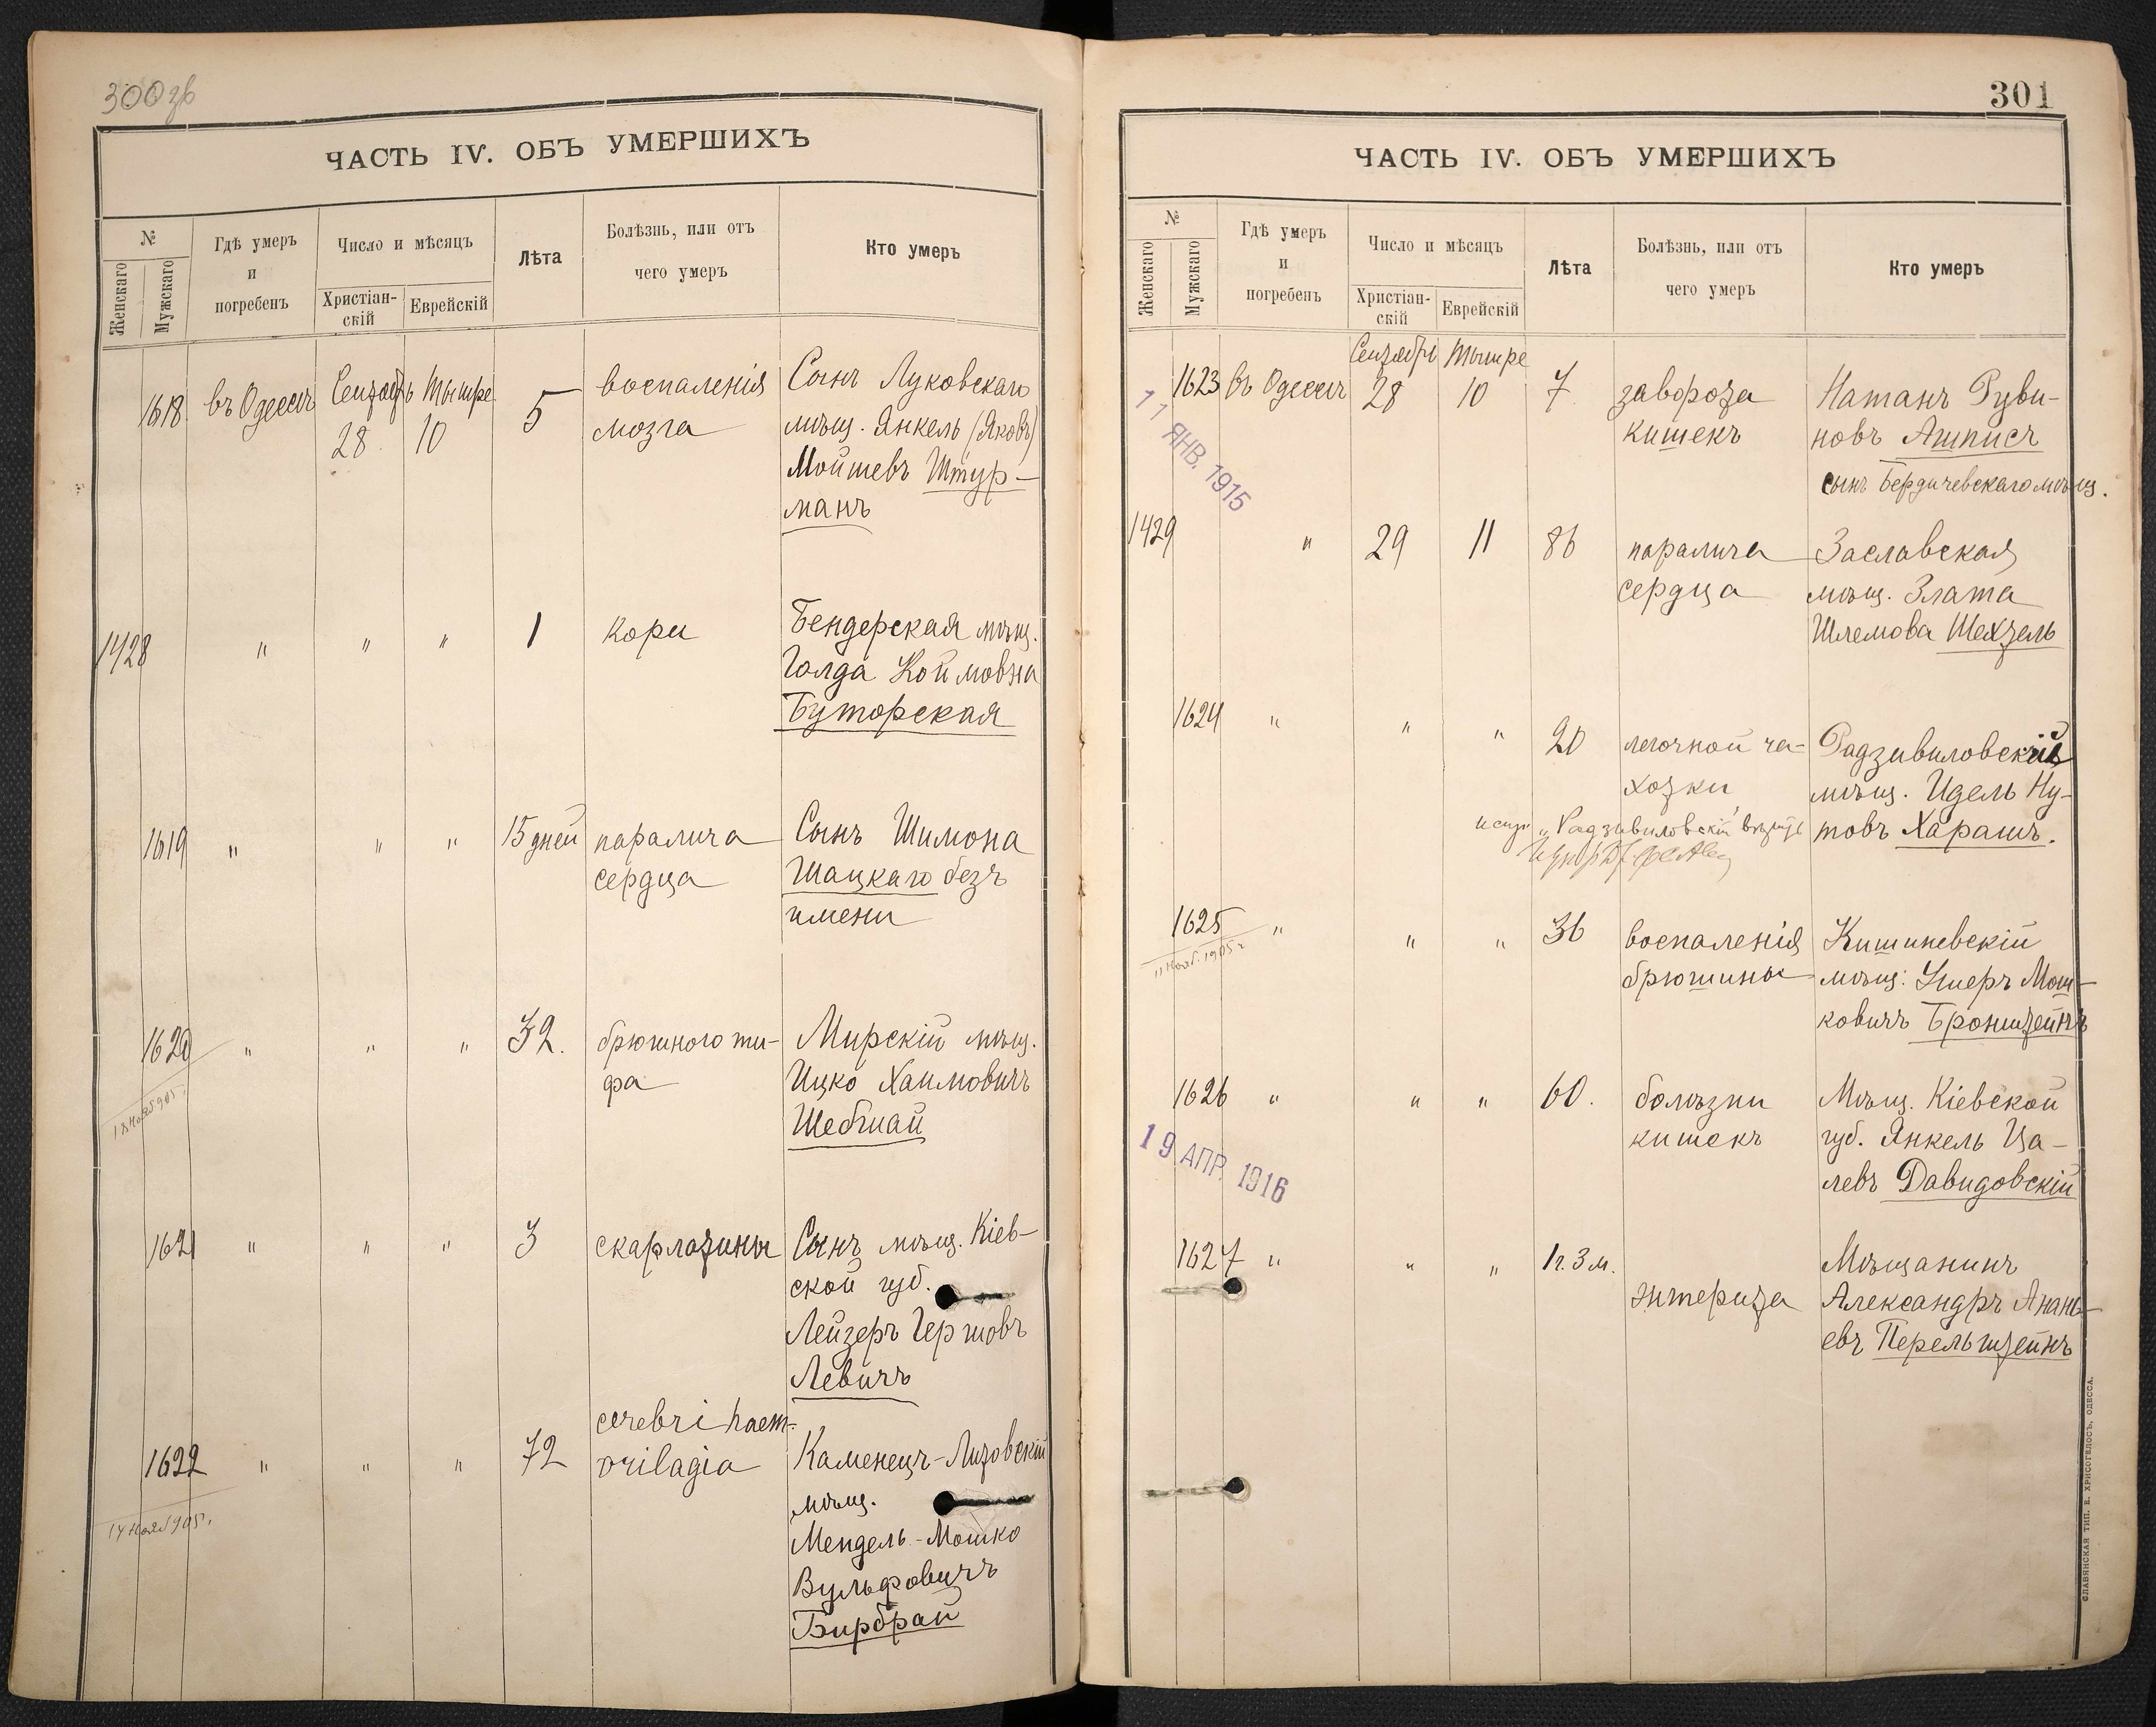 300зв
ЧАСТЬ IV. ОБЪ УМЕРШИХЪ
№
Женскаго
Мужскаго
Гдѣ умеръ
и
погребенъ
Число и мѣсяцъ
Христіан-
скій
Еврейскій
Лѣта
Болѣзнь, или отъ
чего умеръ
Кто умеръ
1618 въ Одессѣ Сентябрь 28 Тышре 10 5
воспаленія
мозга
Сынъ Луковскаго
мѣщ. Янкель (Яковъ)
Мойшевъ Штур-
манъ
1428 " " " 1 кори
Бендерская мѣщ.
Голда Коймовна
Буторская
1619 " " " 15 дней
паралича
сердца
Сынъ Шимона
Шацкаго безъ
имени
1620 " " " 32.
18 Нояб 905 г.
брюшного ти-
фа
Мирскій мѣщ.
Ицко Хаимовичъ
1621 " " " 3 скарлатины
Сынъ мѣщ. Кіев-
ской губ.
Лейзеръ Гершовъ
Левичъ
1622 " " " 72
14 Нояб 905 г.
cerebri haem-
Каменецъ-Литовскій
мѣщ.
Мендель-Мошко
Вульфовичъ
Бирбрай
301
ЧАСТЬ IV. ОБЪ УМЕРШИХЪ
№
Женскаго
Мужскаго
Гдѣ умеръ
и
погребенъ
Число и мѣсяцъ
Христіан-
скій
Еврейскій
Лѣта
Болѣзнь, или отъ
чего умеръ
Кто умеръ
1623 въ Одессѣ Сентябрь 28 Тышре 10 7
11 ЯНВ. 1915
заворота
кишекъ
Натанъ Руви-
новъ Ашписъ
сынъ Бердичевскаго мѣщ.
1429 " 29 11 86
паралича
сердца
Заславская
мѣщ. Злата
Шлемова Шехтель
1624 " " " 20
легочной ча-
хотки
Радзивиловскій
мѣщ. Идель Ну-
товъ Харашъ.
"Радзивиловскій"
1625 " " " 36
11 Нояб. 1905 г.
воспаленія
брюшины
Кишиневскій
мѣщ: Ушеръ Мош-
ковичъ Бронштейнъ
1626 " " " 60.
19 АПР. 1916
болѣзни
кишекъ
Мѣщ. Кіевской
губ. Янкель Ца-
левъ Давидовскій
1627 " " " 1 г. 3 м.
энтерита
Мѣщанинъ
Александръ Анань-
евъ Перельштейнъ
СЛАВЯНСКАЯ ТИП. Е. ХРИСОГЕЛОСЪ, ОДЕССА.